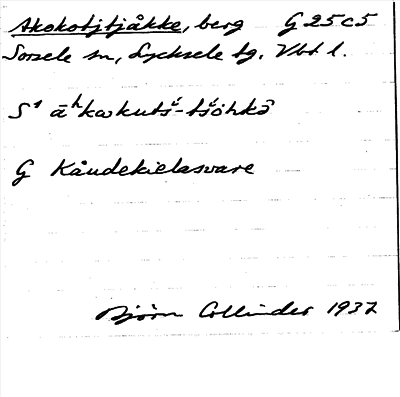 Akokotjtjåkke, berg G 25 c 5
Sorsele sn, Lycksele tg. Vbt l.
S¹ āʰkωkuts̆-ts̆ŏhkə̄
G Kåudekielasvare
Björn Collinder 1937